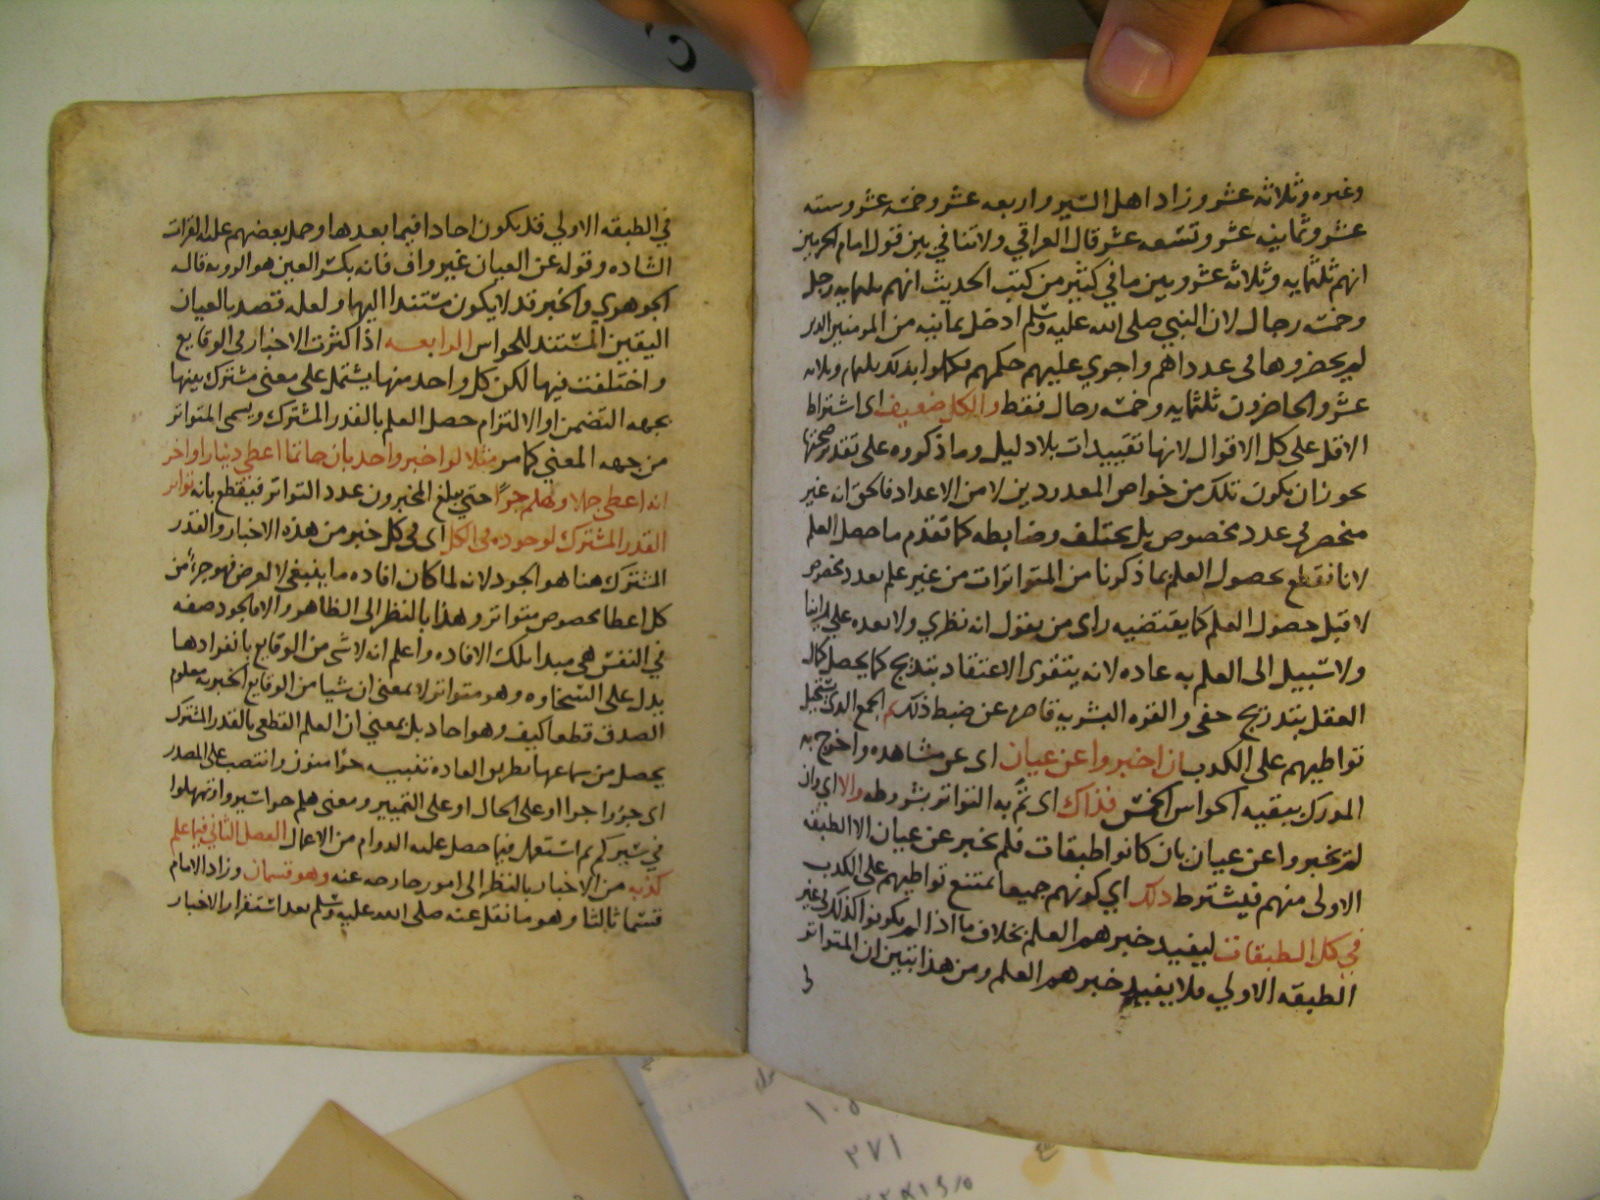 وغيره وثلاثه عشر وزاد اهل السير واربعه عشر وخمسه عشر وسته
عشر وثمانيه عشر وتسعه عشر قال العراقي ولا تنافي بين قول امام الحرمين
انهم ثلثمايه وثلاثه عشر وبين ما في كثير من كتب الحديث انهم ثلثمايه رجل
وخمسه رجال لان النبي صلى الله عليه وسلم ادخل ثمانيه من المومنين الدر
لم يحضروها في عدداهم واجري عليهم حكمهم فكملوا بذلك ثلثمايه وثلاثه
عشر والحاضرون ثلثمايه وخمسه رجال فقط والكل ضعيف اي اشتراط
الاقل على كل الاقوال لانها تقييدات بلا دليل وما ذكروه على تقدير صحتها
يجوز ان يكون تلك من خواص المعدودين لا من الاعداد فالحق انه غير
منحصر في عدد مخصوص بل يختلف وضابطه كما تقدم ما حصل العلم
لانا نقطع بحصول العلم بما ذكرنا من المتواترات من غير علم بعدد مخصوص
لا قبل حصول العلم كما يقتضيه راى من يقول انه نظري ولا بعده على راينا
ولا سبيل الى العلم به عاده لانه يتقوى الاعتقاد بتدريج كما يحصل كمال
العقل بتدريج خفي والقوه البشريه قاصره عن ضبط ذلك ثم الجمع الذي يستحيل
تواطيهم على الكذب ان اخبروا عن عيان اى عن مشاهده واخرج به
المدرك ببقيه الحواس الخمس فذاك اى تم به التواتر بشروطه والا اي وان
لم يخبروا عن عيان بان كانوا طبقات فلم يخبر عن عيان الا الطبقه
الاولى منهم فيشترط ذلك اي كونهم جميعا يمتنع تواطيهم على الكذب
في كل الطبقات ليفيد خبرهم العلم بخلاف ما اذا لم يكونوا كذلك في غير
الطبقه الاولي فلا يفيد خبرهم العلم ومن هذا تبين ان المتواتر
في الطبقه الاولي قد يكون احادا فيما بعدها وحمل بعضهم عليه القراات
الشاذه وقوله عن العيان غير واف فانه بكسر العين هو الرويه قاله
الجوهري والخبر قد لا يكون مستندا اليها ولعله قصد بالعيان
اليقين المستند للحواس الرابعه اذا كثرت الاخبار في الوقايع
واختلفت فيها لكن كل واحد منها يشتمل على معنى مشترك بينها
بجهه التضمن او الالتزام حصل العلم بالقدر المشترك ويسمى المتواتر
من جهه المعني كما مر مثلا لو اخبر واحد بان حاتما اعطي دينارا واخر
انه اعطى جملا وهلم جرا حتى يبلغ المخبرون عدد التواتر فيقطع بانه تواتر
القدر المشترك لوجوده في الكل اى في كل خبر من هذه الاخبار والقدر
المشترك هنا هو الجود لانه لما كان افاده ما ينبغي لا لعوض فهو جزء من
كل اعطا مخصوص متواتر وهذا بالنظر الى الظاهر والا فالجود صفه
في النفس هي مبدا تلك الافاده واعلم انه لا شي من الوقايع بانفرادها
يدل على السخاوه وهو متواتر لا بمعنى ان شيا من الوقايع الخبريه معلوم
الصدق قطعا كيف وهو احاد بل بمعني ان العلم القطعي بالقدر المشترك
يحصل من سماعها بطريق العاده تنبيه جرا منون وانتصب على المصدر
اى جروا جرا او على الحال او على التمييز ومعنى هلم جرا سيروا وتمهلوا
في سيركم ثم استعمل فيما حصل عليه الدوام من الاعمال الفصل الثاني فيما علم
كذبه من الاخبار بالنظر الى امور خارجه عنه وهو قسمان وزاد الامام
قسما ثالثا وهو ما نقل عنه صلى الله عليه وسلم بعد استقرار الاخبار
١٠٥
٢٧١